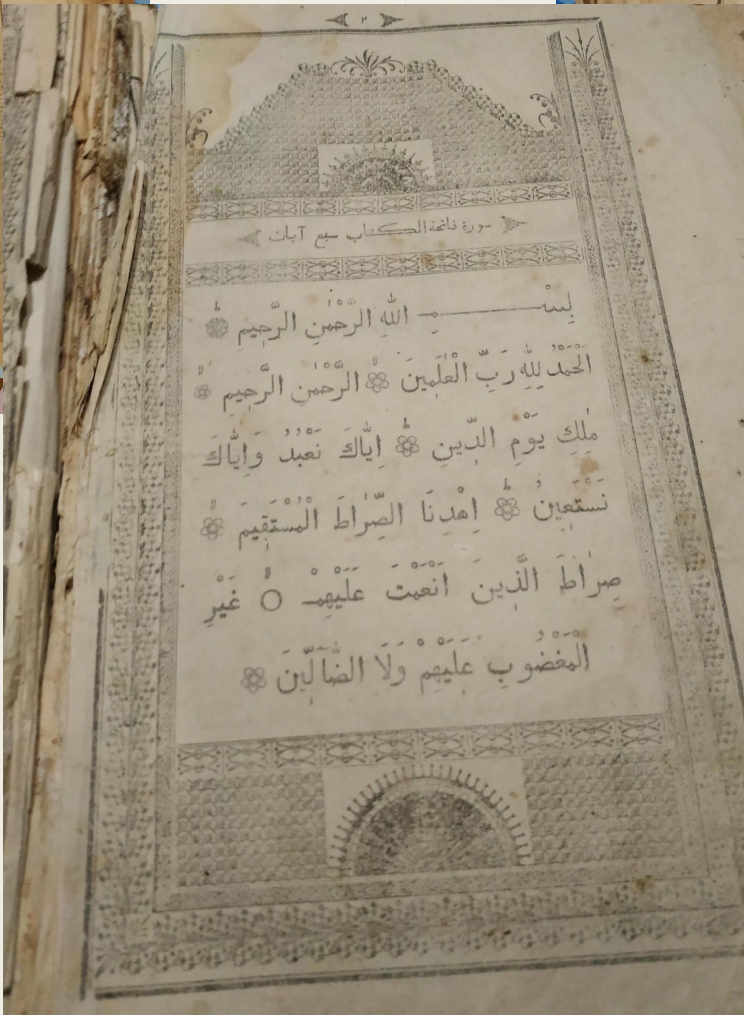 ٢
سورة فاتحة الكتاب سبع آيات
بِسْمِ اللّٰهِ الرَّحْمٰنِ الرَّحِيمِ
اَلْحَمْدُ لِلّٰهِ رَبِّ الْعٰلَمِينَ اَلرَّحْمٰنِ الرَّحِيمِ
مٰلِكِ يَوْمِ الدِّينِ اِيَّاكَ نَعْبُدُ وَاِيَّاكَ
نَسْتَعِينُ اِهْدِنَا الصِّرٰاطَ الْمُسْتَقِيمَ
صِرٰاطَ الَّذِينَ اَنْعَمْتَ عَلَيْهِمْ غَيْرِ
الْمَغْضُوبِ عَلَيْهِمْ وَلَا الضَّٓالِّينَ